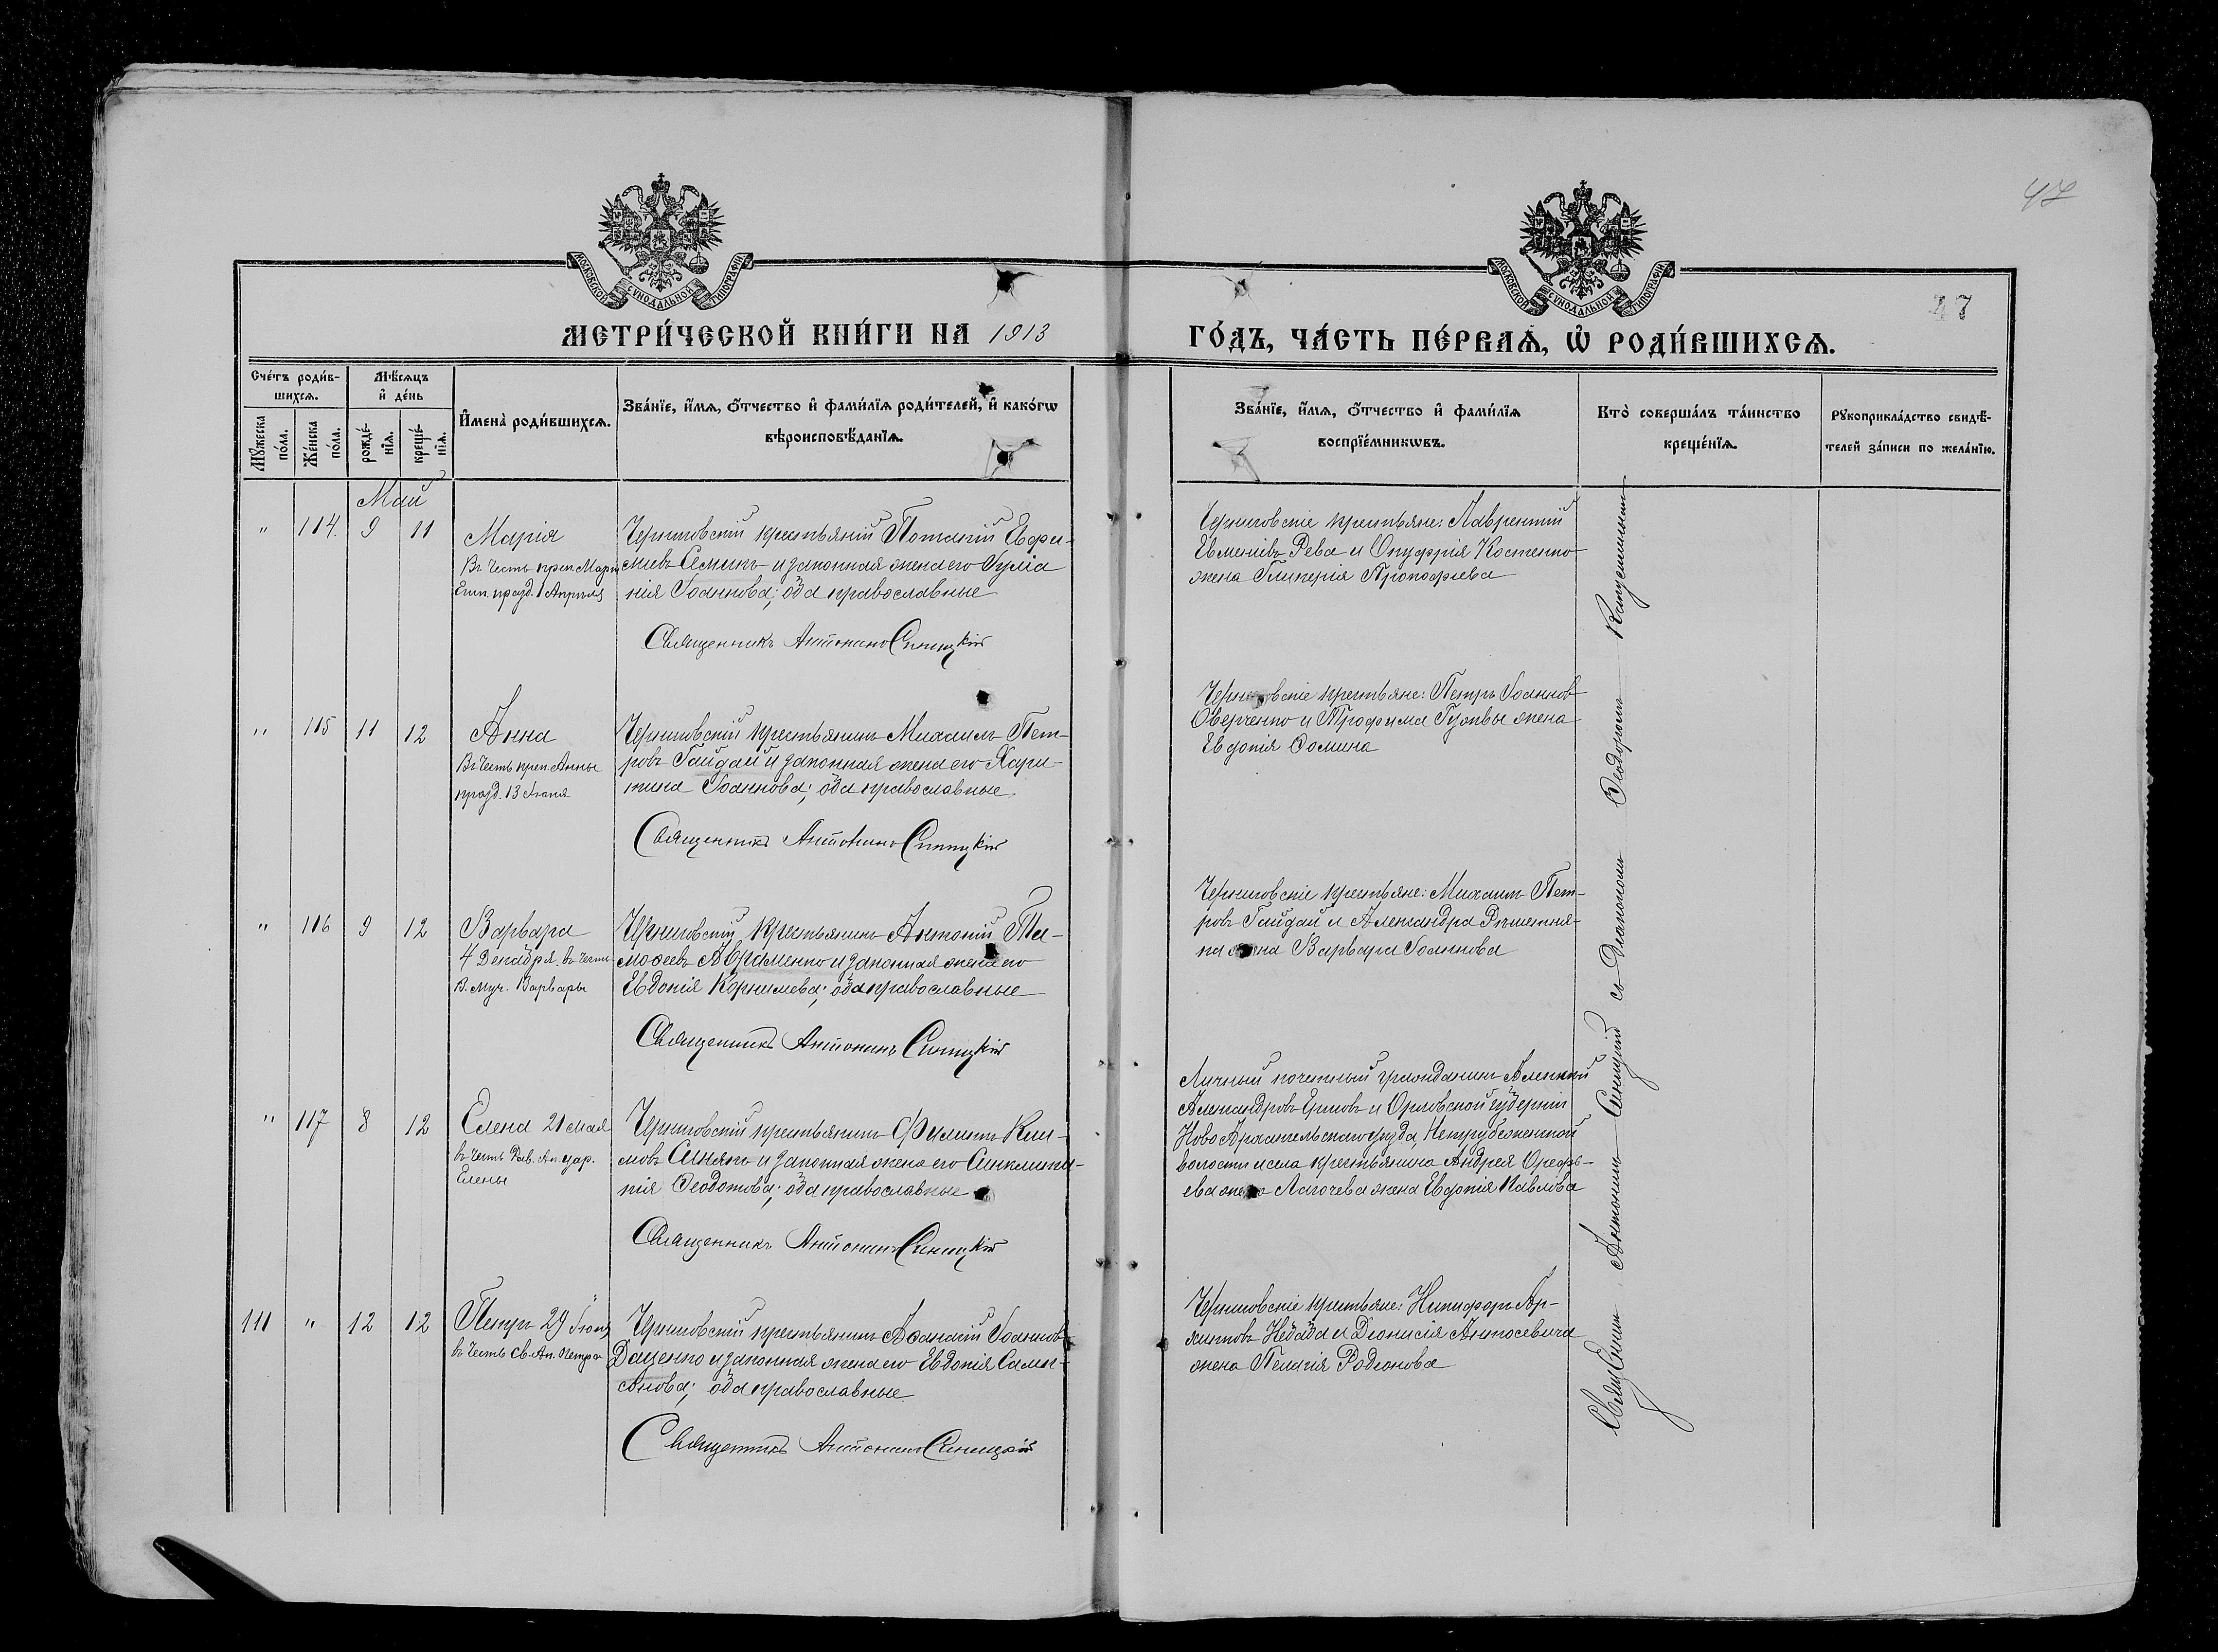 47
МОСКОВСКОЙ СѴНОДАЛЬНОЙ ТИПОГРАФІИ
МОСКОВСКОЙ СѴНОДАЛЬНОЙ ТИПОГРАФІИ
47
МЕТРИ́ЧЕСКОЙ КНИ́ГИ НА 1913 ГО́ДЪ, ЧА́СТЬ ПЕ́РВАѦ, Ѽ РОДИ́ВШИХСѦ.
Сче́тъ роди́в-
шихсѧ.
Мꙋ́жеска
по́ла.
Же́нска
по́ла.
Мѣ́сѧцъ
и҆ де́нь
рожде́-
нїѧ.
креще́-
нїѧ.
И҆мена̀ роди́вшихсѧ.
Зва́нїе, и҆́мѧ, ѻ҆́тчество и҆ фами́лїѧ роди́телей, и҆ како́гѡ
вѣроисповѣ́данїѧ.
Зва́нїе, и҆́мѧ, ѻ҆́тчество и҆ фами́лїѧ
воспрїе́мникѡвъ.
Кто̀ соверша́лъ та́инство
креще́нїѧ.
Рꙋкоприкла́дство свидѣ́-
телей за́писи по жела́нїю.
Май
" 114. 9 11
Марія
Въ честь преп. Маріи
Егип. празд. 1 Апрѣля
Черниговскій крестьянинъ Потапій Евфи-
міевъ и законная жена его Іуліа
нія Іоаннова; оба православные
Священникъ Антонинъ Синицкій
Черниговскіе крестьяне: Лаврентій
Евменіевъ Рева и Онуфрія Костенко
жена Гликерія Прокофіева
" 115 11 12
Анна
Въ честь преп. Анны
празд. 13 Іюня
Черниговскій крестьянинъ Михаилъ Пет-
ровъ Гайдай и законная жена его Хари-
тина Іоаннова; оба православные.
Священникъ Антонинъ Синицкій
Черниговскіе крестьяне: Петръ Іоаннов
Оверченко и Трофима жена
Евдокія Фомина
" 116 9 12
Варвара
4 Декабря. въ честь
В. муч. Варвары
Черниговскій крестьянинъ Антоній Ти-
мофеевъ Авраменко и законная жена его
Евдокія Корнилиева; оба православные
Священникъ Антонинъ Синицкій
Черниговскіе крестьяне: Михаилъ Пет-
ровъ Гайдай и Александра
жена Варвара Іоаннова
" 117 8 12
Елена 21 мая
въ честь Рав. Ап. цар.
Елены
Черниговскій крестьянинъ Филиппъ Кли-
мовъ и законная жена его Синклити-
кія Феодотова; оба православные
Священникъ Антонинъ Синицкій
Личный почетный гражданинъ Алексѣй
Александровъ и Орловской губерніи
волости и села крестьянина Андрея Орефь-
ева жена Евдокія Павлова
111 " 12 12
Петръ 29 Іюня
въ честь Св. Ап. Петра
Черниговскій крестьянинъ Афанасій Іоаннов
Даценко и законная жена его Евдокія Самп-
сонова; оба православные.
Священникъ Антонинъ Синицкій
Черниговскіе крестьяне: Никифоръ Ар-
хиповъ Небаба и Діонисія Антосевича
жена Пелагія Родіонова
Священникъ Антонинъ Синицкій съ Діакономъ Феодоромъ